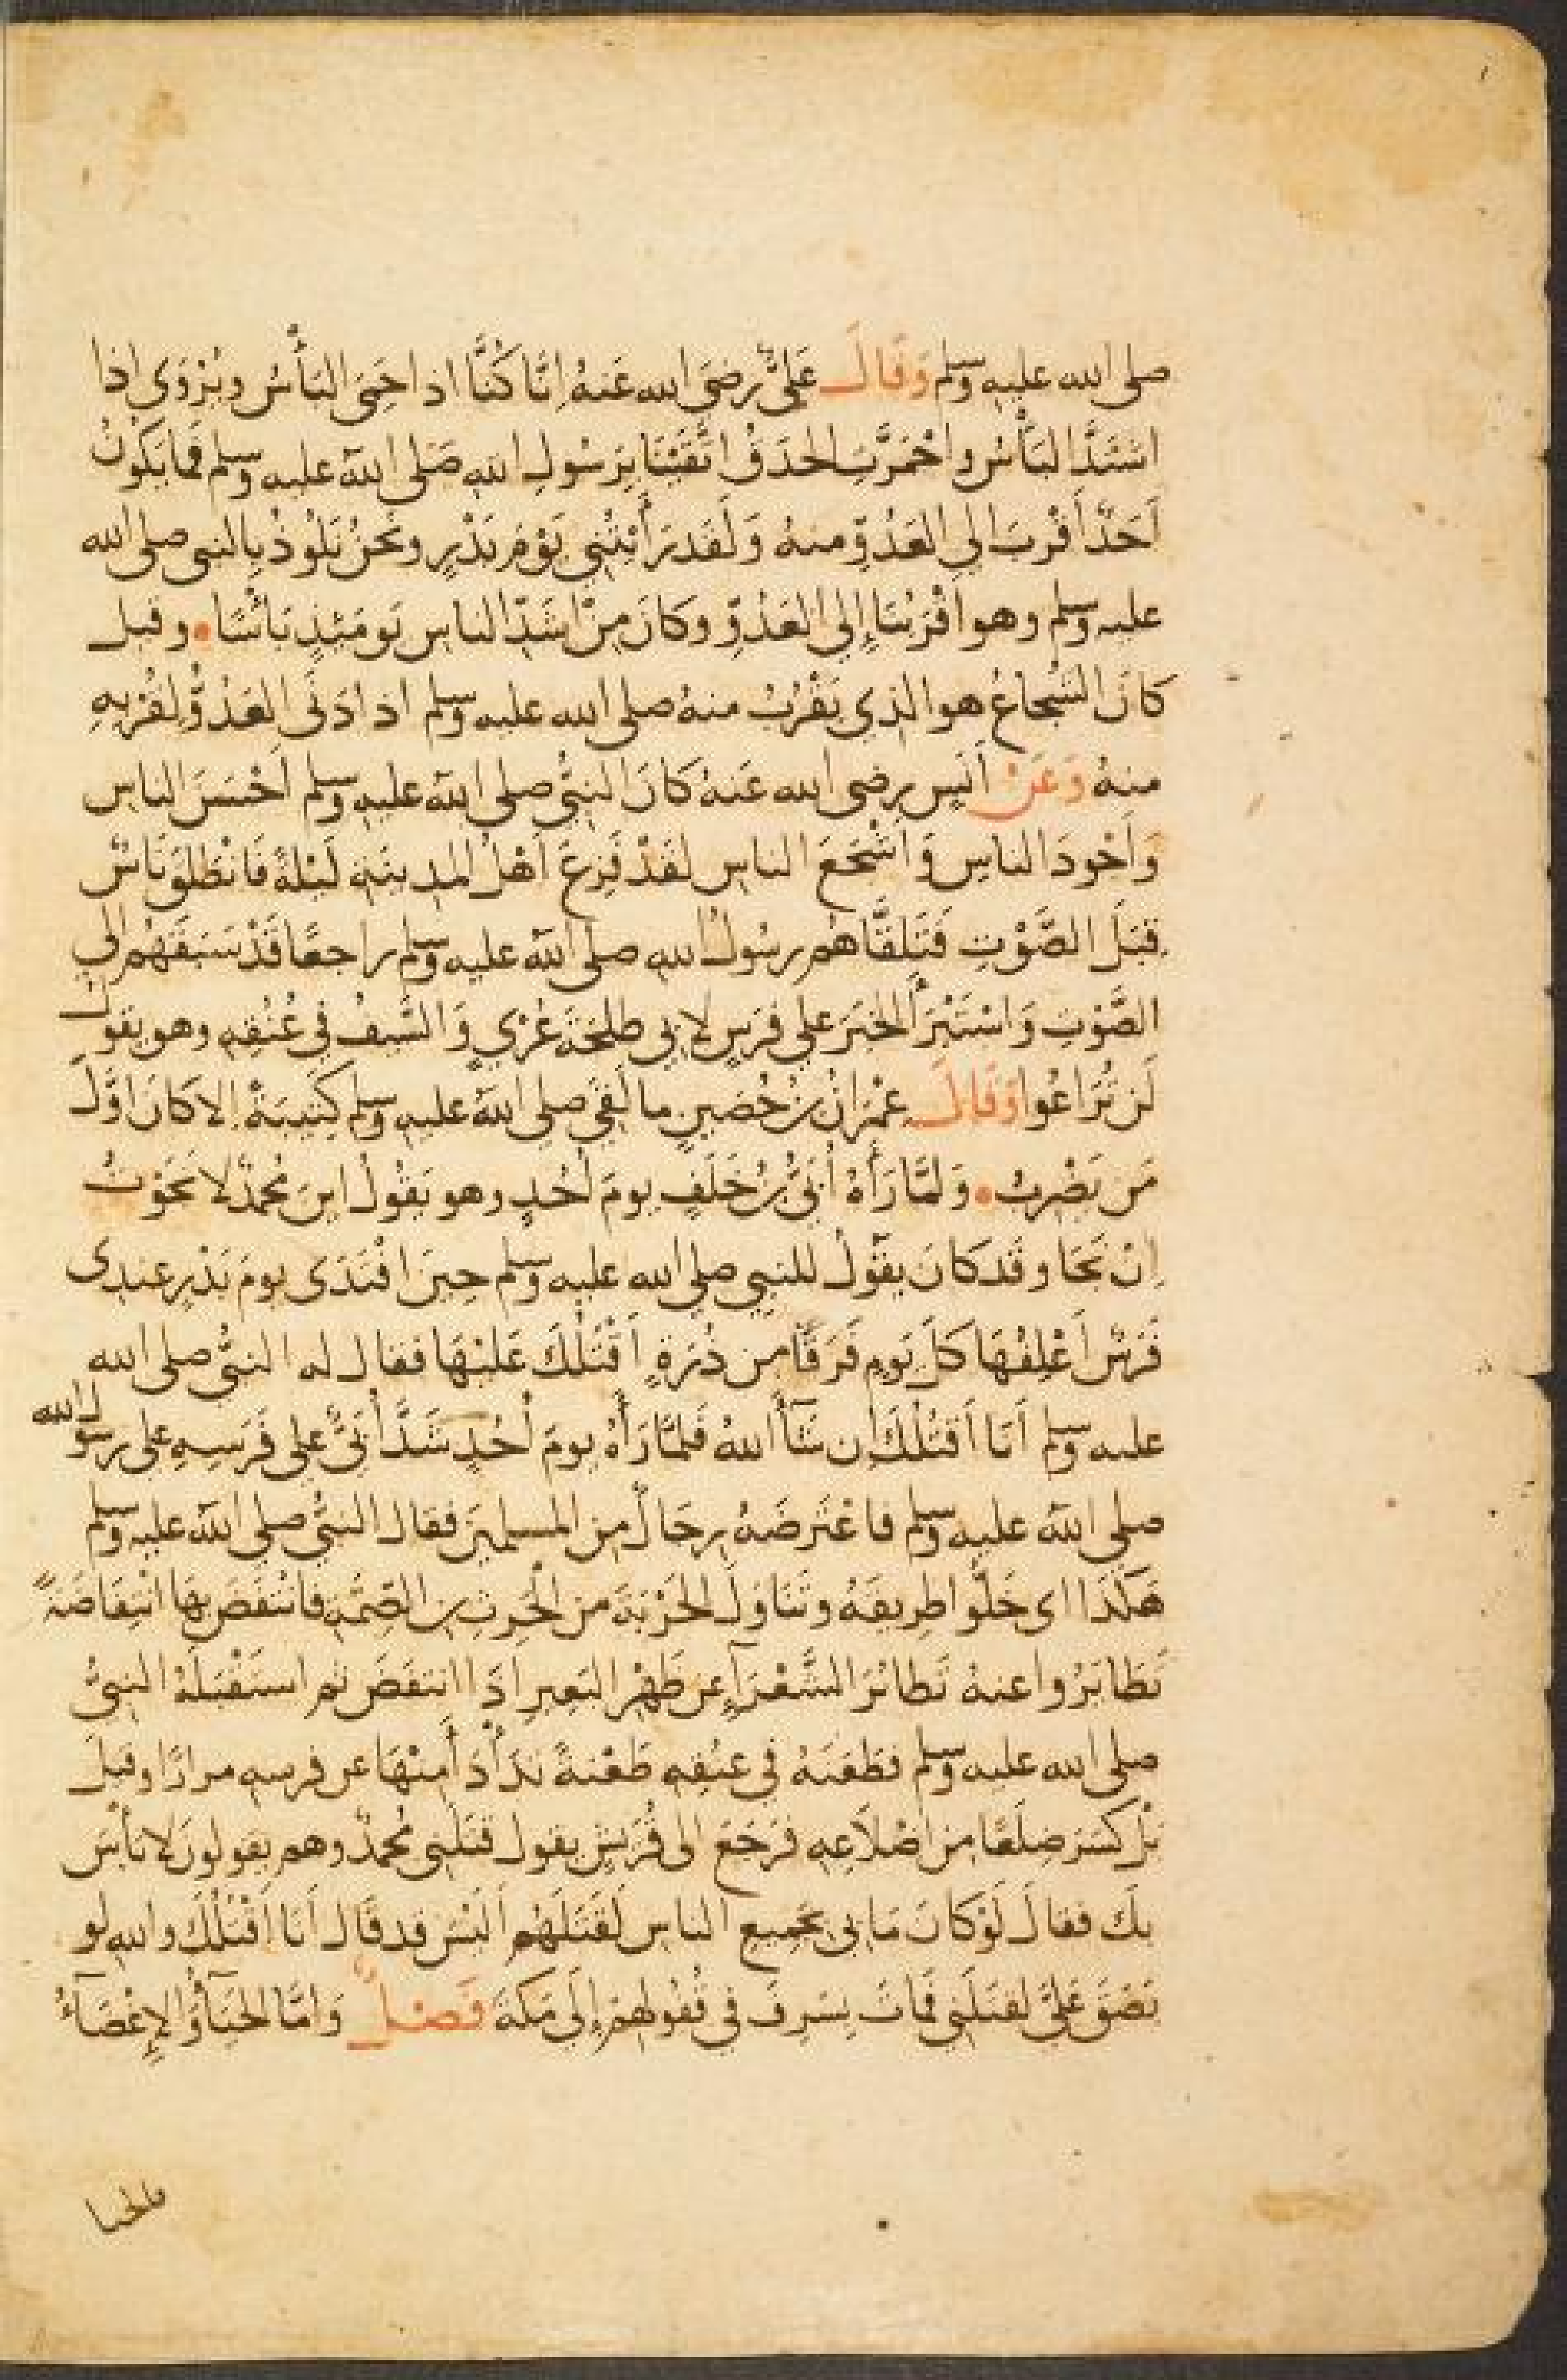 صلى الله عليه وسلم وَقَالَ عَلِيٌّ رضَىَ الله عَنهُ اِنَّا كُنَّا اذا حَمِىَ البَأْسُ ويُرْوَى اذا
اشتَدَّ البَأْسُ واحْمَرَّتِ الحدَقُ اتَّقَيْنَا بِرَسُولِ اللهِ صَلى الله عليه وسلم فما يَكُونُ
أَحَدٌ أَقْرَبَ الى العَدُوِّ منهُ وَلَقَد رَأَيْتُنِي يَوْمَ بَدْرٍ ونحْنُ نَلُوذُ بِالنبى صلى الله
عليه وسلم وهو أَقْرَبُنَا إلى العَدُوِّ وكانَ مِنْ اَشَدِّ الناسِ يَومَئِذٍ بَأْسًا • وقيل
كانَ الشُّجاعُ هو الذي يَقْرُبُ منهُ صلى الله عليه وسلم اذا دَنَى العَدُوُّ لِقُرْبِهِ
منهُ وَعَنْ أَنَسٍ رضى الله عَنهُ كانَ النبىُّ صلى الله عليه وسلم اَحْسَنَ الناسِ
وَاَجْودَ الناسِ وَاَشْجَعَ الناسِ لقَدْ فَزِعَ اَهْلُ المدينَةِ لَيْلةً فَانْطَلَقَ نَاسٌ
قِبَلَ الصَّوْتِ فَتَلَقَّاهُم رسُولُ اللهِ صلى الله عليه وسلم راجعًا قَدْ سَبَقَهُم الى
الصَّوْتِ وَاسْتَبْرَأَ الخبَرَ على فرَسٍ لابي طلحَةَ عُرْيٍ وَالسَّيفُ في عُنُقِهِ وهو يقولُ
لَن تُرَاعُوا وَقَالَ عِمْرَانُ بنُ حُصَينٍ ما لَقِيَ صلى الله عليه وسلم كَتِيبَةً الا كانَ اوَّلَ
مَن يَضْرِبُ • وَلمَّا رَأَهُ أُبَيُّ بنُ خَلَفٍ يومَ أُحُدٍ وهو يَقُولُ اينَ مُحمدٌ لا نَجَوْتُ
اِنْ نَجَا وقَد كانَ يقُولُ للنبي صلى الله عليه وسلم حِينَ افْتَدَى يومَ بَدْرٍ عندى
فَرَسٌ اَعْلِفُهَا كلَّ يَومٍ فَرَقًا من ذُرَةٍ اَقْتُلُكَ عَلَيْهَا فقال له النبىُّ صلى الله
عليه وسلم أَنَا اَقتُلُكَ اِن شَآءَ اللهُ فلمَّا رَأَهُ يومَ أُحُدٍ شَدَّ أُبَيٌّ على فَرَسِهِ على رسول الله
صلى الله عليه وسلم فاعْتَرضَهُ رِجَالٌ مِن المسلمينَ فقال النبىُّ صلى الله عليه وسلم
هَكَذَا اى خَلُّوا طريقَهُ وتَنَاوَلَ الحَرْبَةَ من الحرِثِ بن الصِّمَّةِ فانتفَضَ بِهَا انْتِفَاضَةً
تَطَايَرُوا عنهُ تَطايُرَ الشَّعْرَآءِ عن ظَهْرِ البَعيرِ اذَا انتَفَضَ ثم استَقْبَلَهُ النبىُّ
صلى الله عليه وسلم فطَعَنَهُ في عنُقِهِ طَعْنةً تَدَأْدَأَ مِنْهَا عن فرسِهِ مرارًا وقيلَ
بَلْ كسَرَ ضِلَعًا مِن اَضْلَاعِهِ فرَجَعَ الى قُرَيْشٍ يقول قتَلَنِي مُحمدٌ وهم يقولونَ لا بَأْسَ
بكَ فقالَ لَوْ كانَ مَا بى بجَمِيعِ الناسِ لَقَتَلَهُم اَلَيْسَ قد قَالَ اَنَا اَقْتُلُكَ واللهِ لو
بَصَقَ عَليَّ لقَتَلَنِي فمَاتَ بِسَرِفَ في قُفُولِهِم إلَى مَكةَ فَصْلٌ وَامَّا الحَيَآءُ وَالاِغْضَآءُ
فالحيا